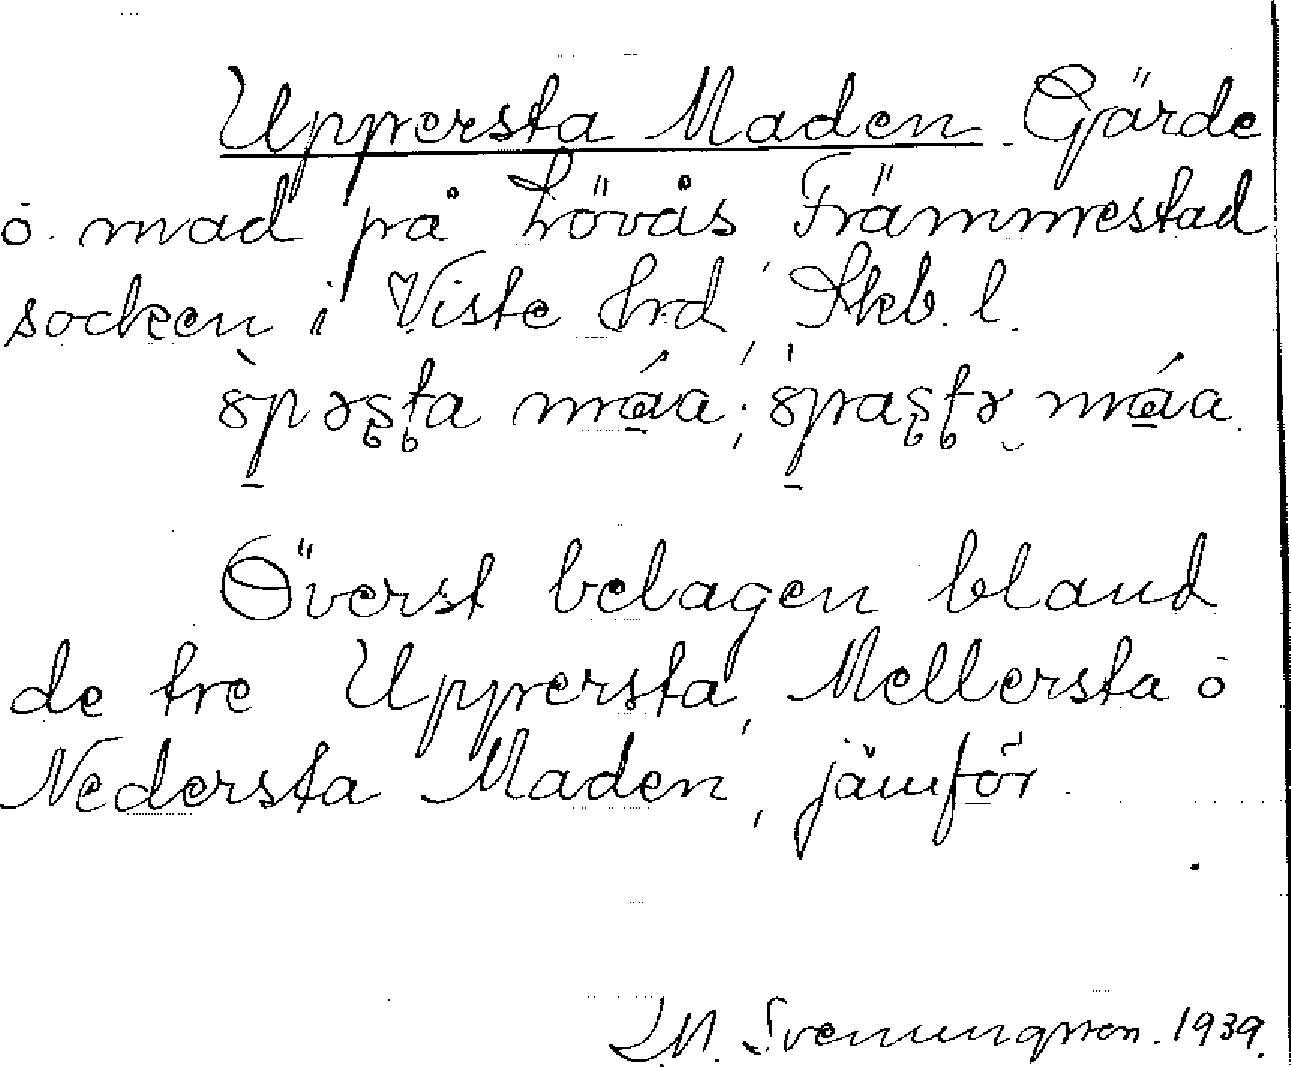 Uppersta Maden. Gärde
o. mad på Lövås, Främmestad
socken i Viste hrd, Skb. l.
Överst belagen bland
de tre Uppersta, Mellersta o
Nedersta Maden, jämför.
Svenungsson. 1939.